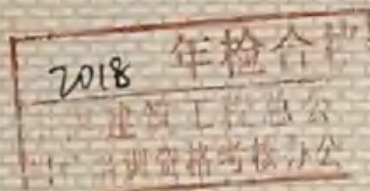 2018 年检合格
建筑工程总公
训资格考核办公